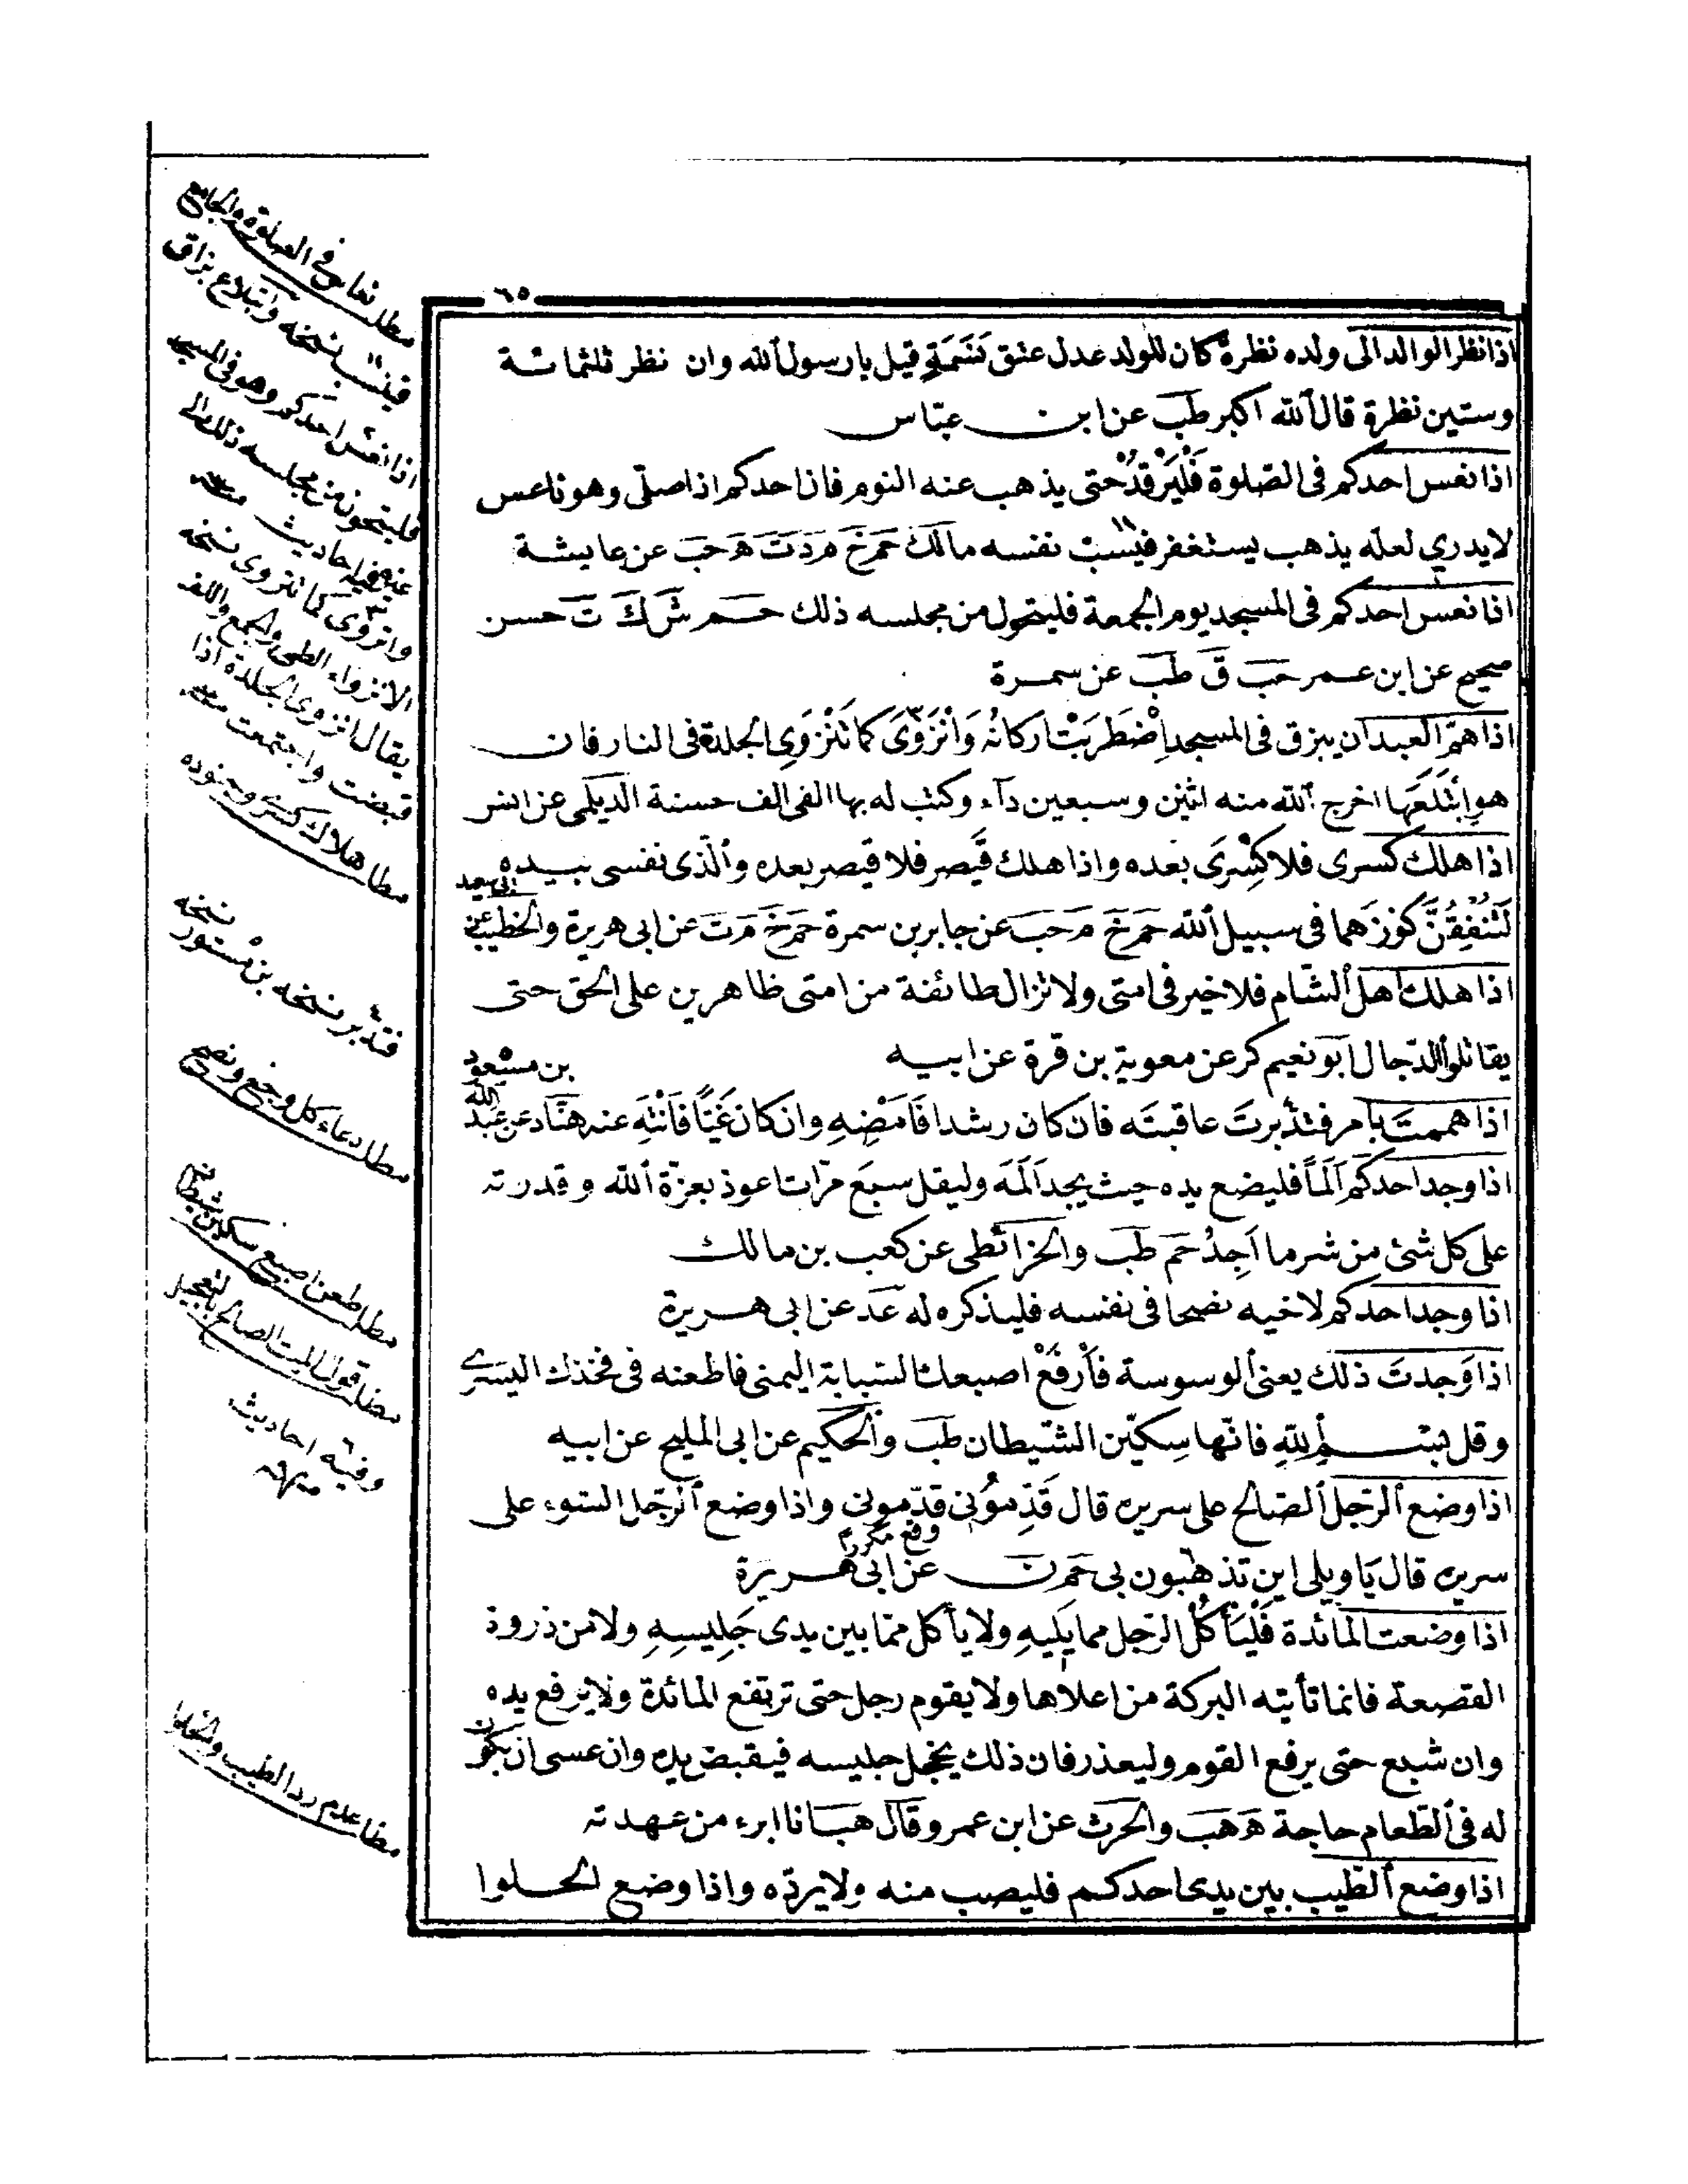 ٦٥
اذا نظر الوالد الى ولده نظرة كان للولد عدل عتق نَسَمَةٍ قيل يا رسول الله وان نظر ثلثمائة
وستين نظرة قال الله اكبر طب عن ابن عبّاس
اذا نعس احدكم فى الصّلوة فَلْيَرْقُدْ حتى يذهب عنه النوم فان احدكم اذا صلّى وهو ناعس
لا يدري لعله يذهب يستغفر فيَسبّ نفسه مالك حم خ م د ت ه حب عن عايشة
اذا نعس احدكم فى المسجد يوم الجمعة فليتحول من مجلسه ذلك حم ش ك ت حسن
صحيح عن ابن عمر حب ق طب عن سمرة
اذا همّ العبد ان يبزق فى المسجد اِضْطَرَبَتْ اركانُه وَاَنْزَوَى كما تَنْزَوِى الجلدة فى النار فان
هو اِبْتَلَعَها اخرج الله منه اثنين وسبعين دآء وكتب له بها الفى الف حسنة الديلمى عن انس
اذا هلك كسرى فلا كِسْرَى بعده واذا هلك قَيصر فلا قيصر بعده وألّذى نفسى بيده
لَتُنْفِقُنَّ كنوزَهما فى سبيل الله حم خ م حب عن جابر بن سمرة حم خ م ت عن ابى هريرة والخطيب عن
ابى سعيد
اذا هلك اهل ألشام فلا خير فى امتى ولا تزال طائفة من امتى ظاهرين على الحق حتى
يقاتلوا الدّجال ابو نعيم كر عن معوية بن قرة عن ابيه
اذا هممتَ بامر فتدبرتَ عاقبتَه فان كان رشدا فَاَمْضِهِ وان كان غَيًّا فَانْتَهِ عنه هنّاد عن عبد الله
بن مسْعود
اذا وجد احدكم اَلَماً فليضع يده حيث يجد اَلَمَه وليقل سبعَ مرّات اعوذ بعزة ألله وقدرته
على كل شئ من شر ما اَجِدُ حم طب والخرائطى عن كعب بن مالك
اذا وجد احدكم لاخيه نصحا فى نفسه فليذكره له عد عن ابى هريرة
اذا وَجدتَ ذلك يعنى ألوسوسة فأرفَعْ اصبعك السّبابة اليمنى فاطعنه فى فخذك اليسرى
وقل بسم ألله فانّها سِكّين الشّيطان طب وألحكيم عن ابى المليح عن ابيه
اذا وضع ألرّجل ألصّالح على سريره قال قَدِّمُوْنى قدّمونى واذا وضع ألرّجل السّوء على
سريره قال يَا ويلى اين تذهبون بى حم ن عن ابى هريرة
وقع مكررا
اذا وضعت المائدة فَلْيَأْكُلْ الرّجل مما يَلِيهِ ولا يأكل ممّا بين يدى جَلِيسِهِ ولا من ذروة
القصعة فانما تأتيه البركة من اعلاها ولا يقوم رجل حتى ترتفع المائدة ولا يرفع يده
وان شبع حتى يرفع القوم وليعذر فان ذلك يخجل جليسه فيقبض يده وان عسى ان يكون
له فى ألطّعام حاجة ه هب والحرث عن ابن عمر وقال هب انا ابرء من عهدته
اذا وضع ألطّيب بين يدى احدكم فليصب منه ولا يردّه واذا وضع الحلوا
مطلب نعاس فى الصلوة والجامع
فينسب نسخه وابتلاع بزاق
اذا نعس احدكم وهو فى المسجد
فليتحول من مجلسه ذلك الى
غيره وفيه احاديث منه
وانزوى كما تنزوى نسخه
الانزواء الطى والجمع واللف
يقال انزوى الجلدة اذا
قبضت واجتمعت منه
مطلب هلاك كسرى وجنوده
نسخه
فتدبر نسخه بن مستور
مطلب دعاء كل وجع ونصح
مطلب طعن اصبع سكين شيطان
مطلب قول الميت الصالح بالتعجيل
وفيه احاديث
منه
مطلب عدم رد الطيب والحلوا